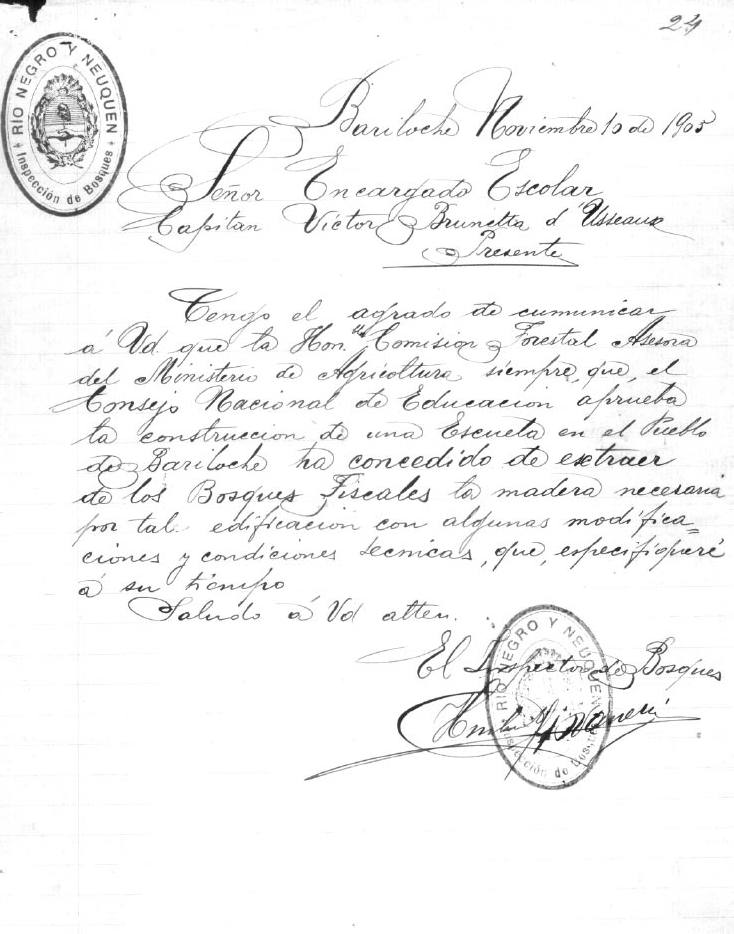 24
RIO NEGRO Y NEUQUEN
Inspección de Bosques
Bariloche Noviembre 10 de 1905
Señor Encargado Escolar
Capitan Victor Brunetta d'Usseaux
Presente
Tengo el agrado de cumunicar
á Vd. que la Hon.ble Comision Forestal Asesora
del Ministerio de Agricoltura siempre, que, el
Consejo Nacional de Educacion aprueba
la construccion de una Escuela en el Pueblo
de Bariloche ha concedido de extraer
de los Bosques Fiscales la madera necesaria
por tal edificacion con algunas modifica=
ciones y condiciones tecnicas, que, especifiqueré
á su tiempo
Saludo á Vd atten.
El Inspector de Bosques
RIO NEGRO Y NEUQUEN
Inspección de Bosques